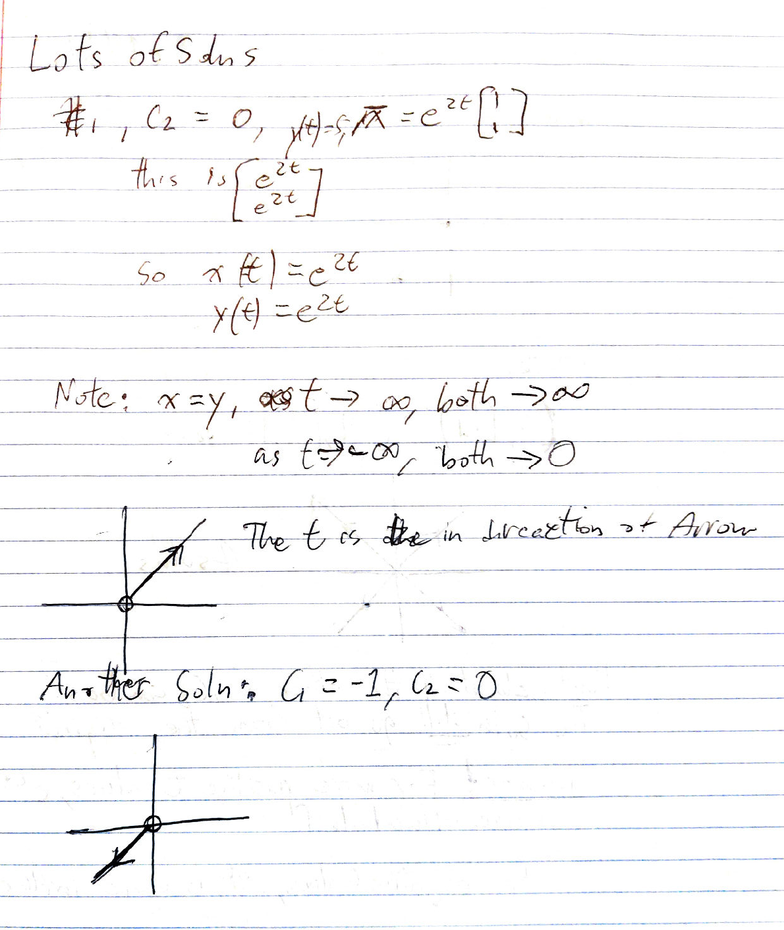 Lots of Solns
#1, C₂ = 0, x̄ = e^{2t} [1 1]
this is [e^{2t} e^{2t}]
so x(t) = e^{2t}
y(t) = e^{2t}
Note: x = y, as t → ∞, both → ∞
as t → -∞, both → 0
The t is in direction of Arrow
Another Soln: C₁ = -1, C₂ = 0